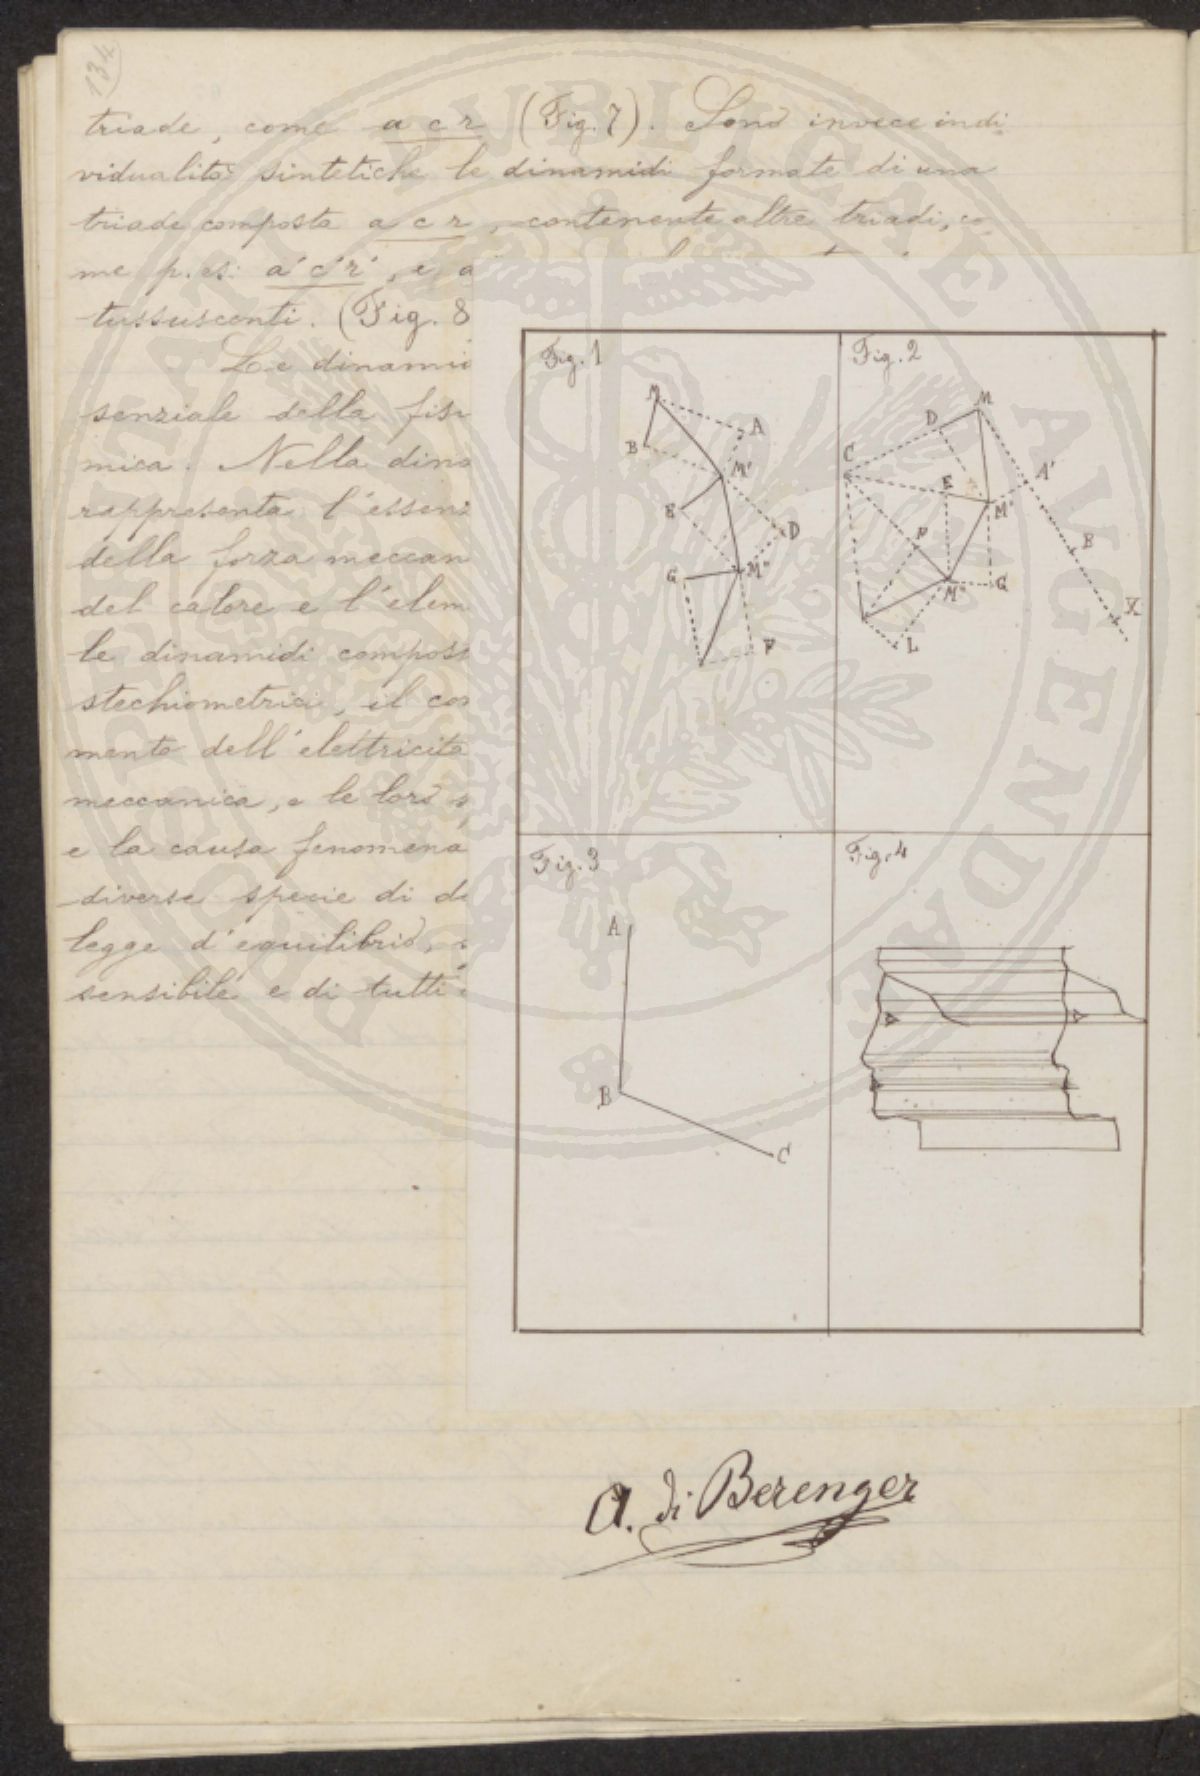 134
triade, come a c r (Fig. 7). Sono invece indi
vidualità sintetiche le dinamidi formate di una
triade composta a c r, contenente altre triadi, co
me p. es: a' c' r', e
tussusconti. (Fig. 8
Le dinami
senziale della fisi
mica. Nella dina
rappresenta l'essen
della forza meccan
del calore e l'elem
le dinamidi compos
stechiometrici, il co
mento dell'elettricità
meccanica, e le loro
e la causa fenomena
diverse specie di
legge d'equilibrio,
sensibile e di tutti
Fig. 1
M
A
B
M'
E
D
G
M''
F
Fig. 2
M
D
C
A'
E
M'
B
F
M''
G
X
L
Fig. 3
A
B
C
Fig. 4
A. di Berenger
PATAVII
PUBLICAE
AUGENDAE
PROSPERITATI